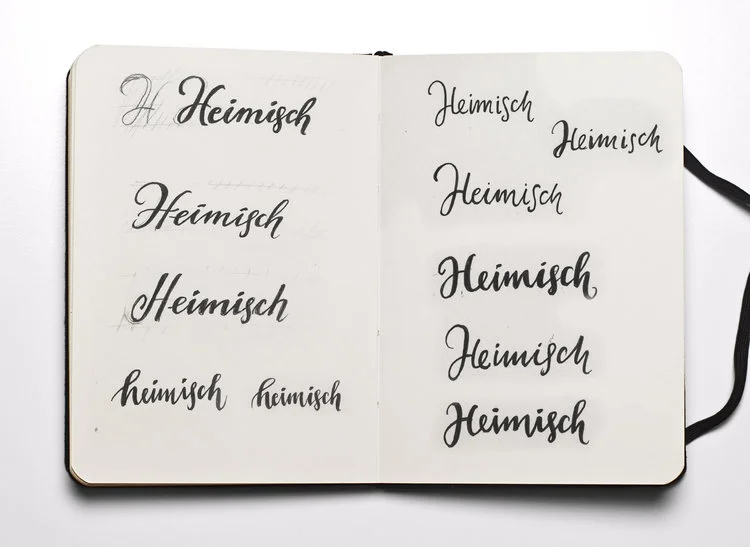 H Heimisch
Heimisch
Heimisch
heimisch heimisch
Heimisch
Heimisch
Heimisch
Heimisch
Heimisch
Heimisch